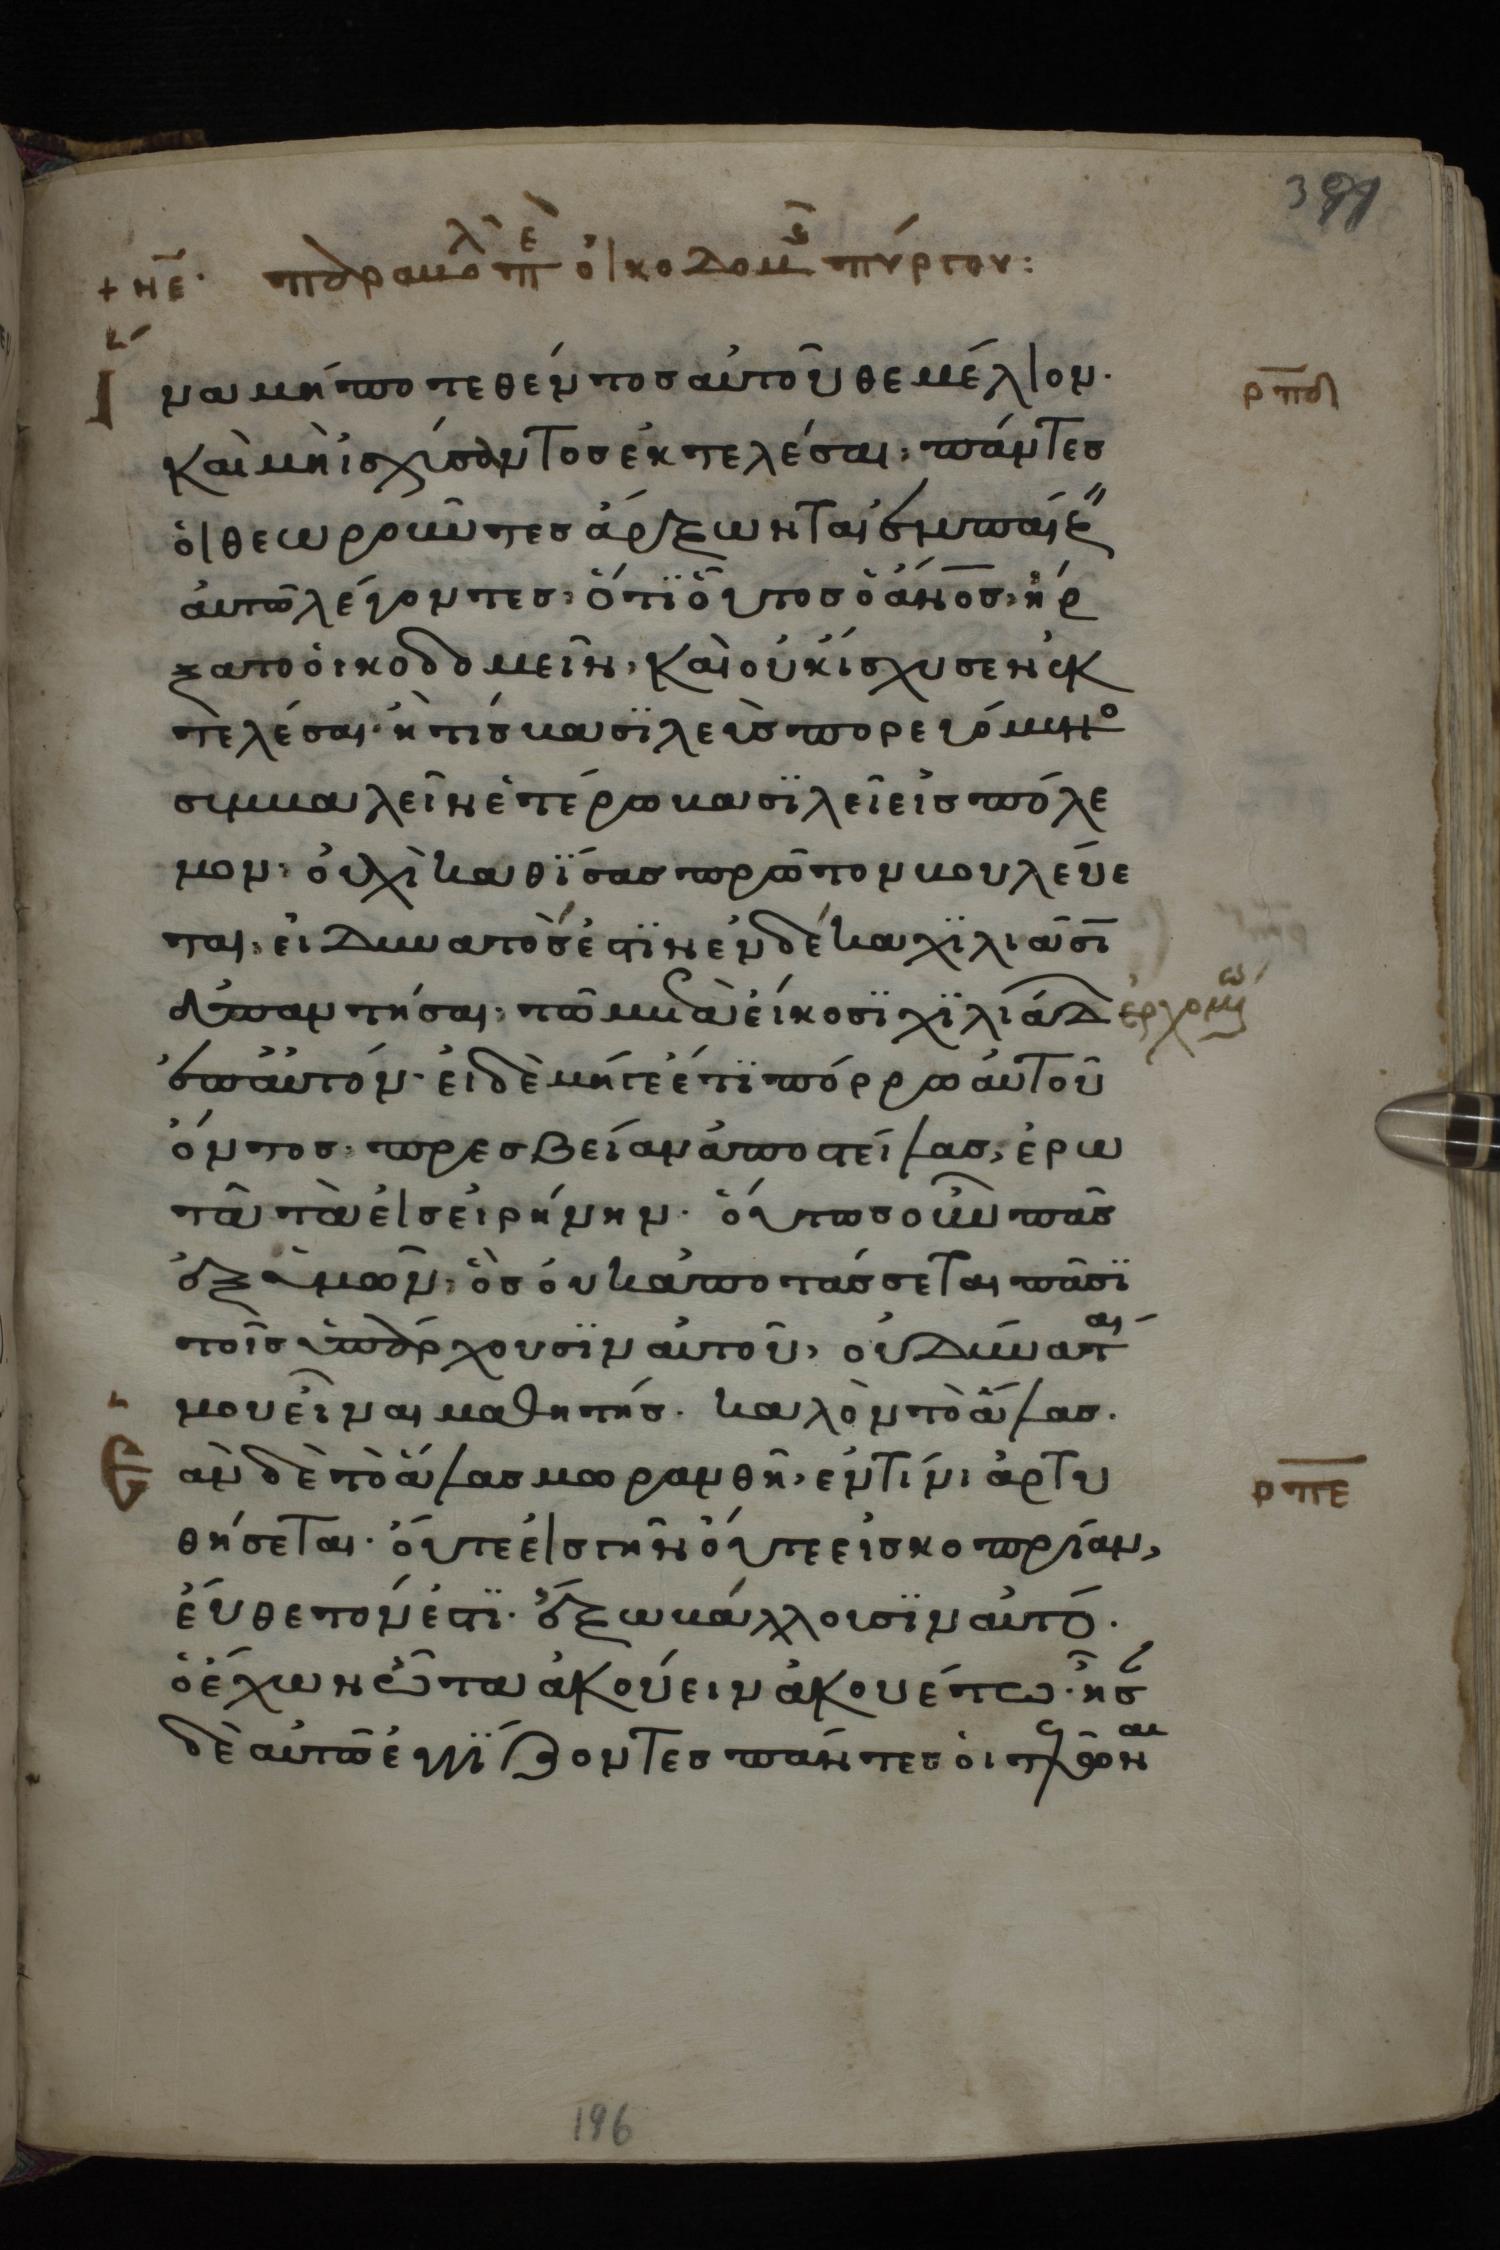 391
+ νε̅· παραβολ περὶ οἰκοδομῆς πύργου:
Ἵ
να μή ποτε θέντος αὐτοῦ θεμέλιον· ρπδ
καὶ μὴ ἰσχύσαντος ἐκτελέσαι, πάντες
οἱ θεωροῦντες ἄρξωνται ἐμπαίζ
αὐτῶ λέγοντες, ὅτι οὗτος ὁ ἄνος, ἤρ
ξατο οἰκοδομεῖν, καὶ οὐκ ἴσχυσεν ἐκ
τελέσαι· ἢ τίς βασϊλεὺς πορευόμεν
συμβαλεῖν ἑτέρω βασϊλεῖ εἰς πόλε
μον, οὐχὶ καθΐσας πρῶτον βουλεύε
ται, εἰ δυνατός ἐστϊν ἐν δέκα χϊλιᾶσι
ἀπαντῆσαι, τῶ μετὰ εἴκοσϊ χϊλιάδ ἐρχομένω
ἐπ αὐτόν· εἰ δὲ μήγε ἔτϊ πόρρω αὐτοῦ
ὄντος, πρεσβείαν ἀποστείλας, ἐρω
τᾶ τὰ εἰς εἰρήνην· οὕτως οὖν πᾶς
ἐξ ὑμῶν, ὃς οὐκ ἀποτάσσεται πᾶσϊ
τοῖς ὑπάρχουσϊν αὐτοῦ, οὐ δύναται
μου εἶναι μαθητής· καλὸν τὸ ἅλας·
Ἐ
αν δὲ τὸ ἅλας μωρανθῆ, ἐν τίνι ἀρτυ ρπε
θήσεται· οὔτε εἰς γῆν οὔτε εἰς κοπρίαν,
εὔθετον ἐστϊ· ἔξω βάλλουσϊν αὐτό·
ὁ ἔχων ὦτα ἀκούειν ἀκουέτω· ἦσ
δὲ αὐτῶ ἐγγΐζοντες πάντες οἱ τελῶναι
196